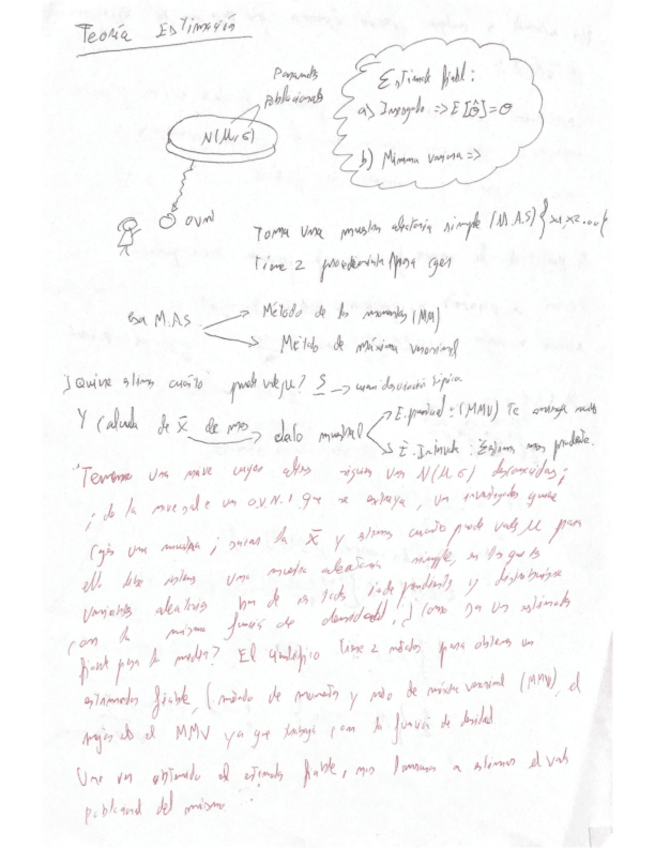 Teoría Estimación
Parametros
Poblacionales
N(μ, σ)
Estimador fiable:
a) Insesgado => E[θ̂]=θ
b) Mínima varianza =>
OVNI
Toma una muestra aleatoria simple (M.A.S) {x1, x2...
Tiene 2 procedimientos para coger
esa M.A.S
Método de los momentos (MM)
Método de máxima verosimil
Quiere estimar cuánto puede valer μ? S → cuasidesviación típica
Y calcula de x̄ de → dato muestral
E. puntual: (MMV) Te
E. Intervalo: Estima mas prudente.
"Tenemos una nave cuyos siguen una N(μ, σ) desconocidas;
de la nave sale un O.V.N.I que se extraya, un investigador quiere
coger una muestra; sacar la x̄ y estimar cuánto puede valer μ para
ello debe obtener una muestra aleatoria simple, en los que las
variables aleatorias han de ser todas independientes y distribuirse
con la misma función de densidad. ¿Como es un estimador
fiable para la media? El científico tiene 2 métodos para obtener un
estimador fiable, (método de momentos y método de máxima verosimil (MMV), el
mejor es el MMV ya que trabaja con la función de densidad
Una vez obtenido el estimador fiable, nos lanzamos a estimar el valor
poblacional del mismo